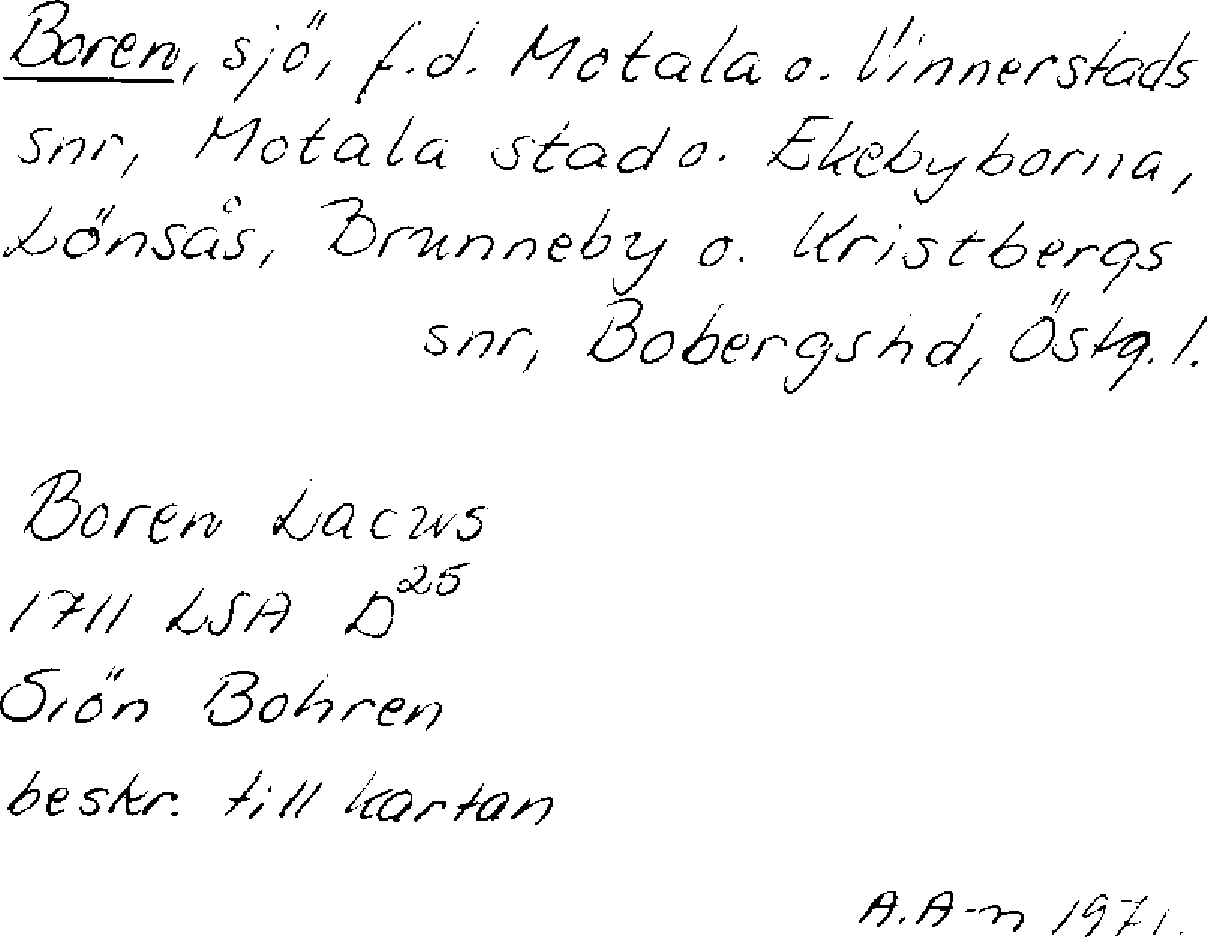 Boren, sjö, f.d. Motala o. Vinnerstads
snr, Motala stad o. Ekebyborna,
Lönsås, Brunneby o. Kristbergs
snr, Bobergshd, Östg.l.
Boren Lacus
1711 LSA D25
Siön Bohren
beskr. till kartan
A.A-n 1971.